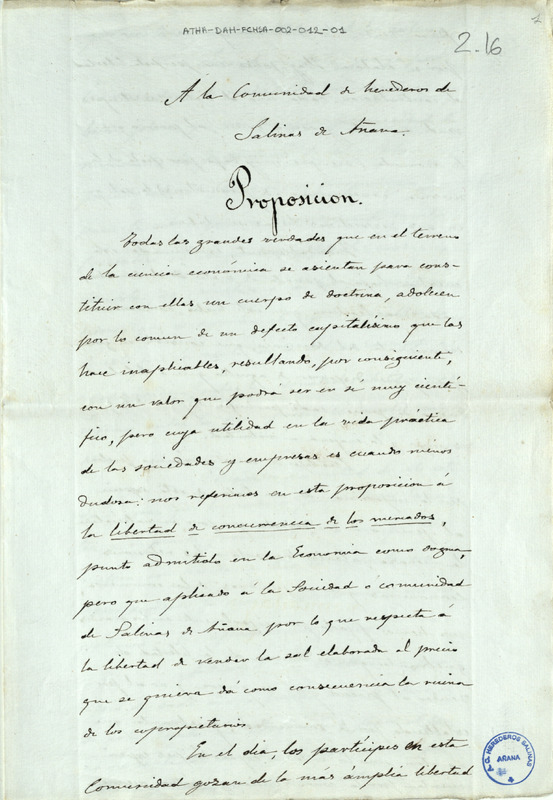 ATHA-DAH-FCHSA-002-012-01
2.16
A la Comunidad de herederos de
Salinas de Añana.
Proposicion.
Todas las grandes verdades que en el terreno
de la ciencia económica se asientan para cons-
tituir con ellas un cuerpo de doctrina, adolecen
por lo comun de un defecto capitalísimo que las
hace inaplicables, resultando, por consiguiente,
con un valor que podrá ser en sí muy cientí-
fico, pero cuya utilidad en la vida práctica
de las sociedades y empresas es cuando menos
dudosa: nos referimos en esta proposicion á
la libertad de concurrencia de los mercados,
punto admitido en la Economia como dogma,
pero que aplicado á la Sociedad o comunidad
de Salinas de Añana por lo que respecta á
la libertad de vender la sal elaborada al precio
que se quiera dá como consecuencia la ruina
de los copropietarios.
En el dia, los partícipes en esta
Comunidad gozan de la mas ámplia libertad
HEREDEROS SALINAS
AÑANA